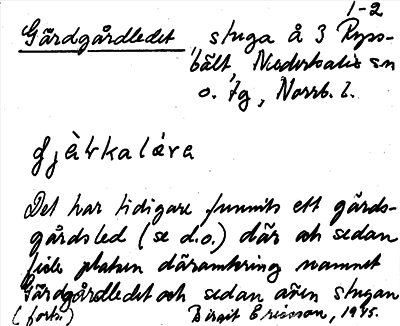 1-2
Gärdgårdledet, stuga å 3 Ryss-
bält, Nederkalix sn
o. tg, Norrb. l.
gjàrkaláre
Det har tidigare funnits ett gärds-
gårdsled (se d.o.) där och sedan
fick platsen däromkring namnet
Gärdgårdledet och sedan även stugan
(forts.) Birgit Ericsson, 1945.